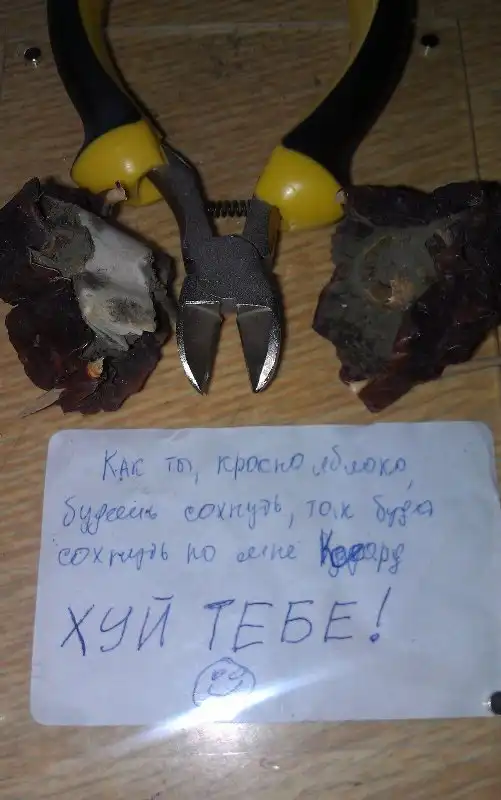 Как ты, красно яблоко,
будешь сохнуть, так буде
сохнуть по мне
ХУЙ ТЕБЕ!